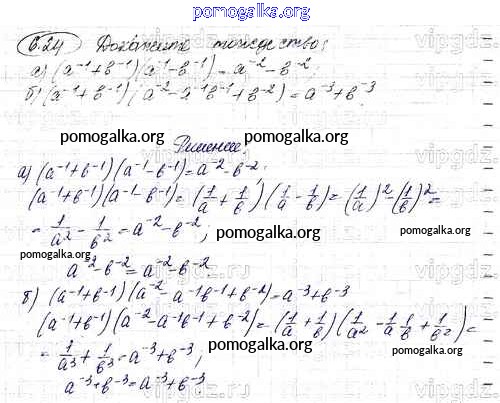 pomogalka.org
6.24 Докажите тождество:
а) (a⁻¹+b⁻¹)(a⁻¹-b⁻¹)=a⁻²-b⁻²;
б) (a⁻¹+b⁻¹)(a⁻²-a⁻¹b⁻¹+b⁻²)=a⁻³+b⁻³.
pomogalka.org pomogalka.org
Решение
а) (a⁻¹+b⁻¹)(a⁻¹-b⁻¹)=a⁻²-b⁻²;
(a⁻¹+b⁻¹)(a⁻¹-b⁻¹)=(1/a+1/b)(1/a-1/b)=(1/a)²-(1/b)²=
=1/a²-1/b²=a⁻²-b⁻²;
pomogalka.org pomogalka.org
a⁻²-b⁻²=a⁻²-b⁻²
б) (a⁻¹+b⁻¹)(a⁻²-a⁻¹b⁻¹+b⁻²)=a⁻³+b⁻³
(a⁻¹+b⁻¹)(a⁻²-a⁻¹b⁻¹+b⁻²)=(1/a+1/b)(1/a²-1/a 1/b+1/b²)=
=1/a³+1/b³=a⁻³+b⁻³;
pomogalka.org pomogalka.org
a⁻³+b⁻³=a⁻³+b⁻³.
pomogalka.org